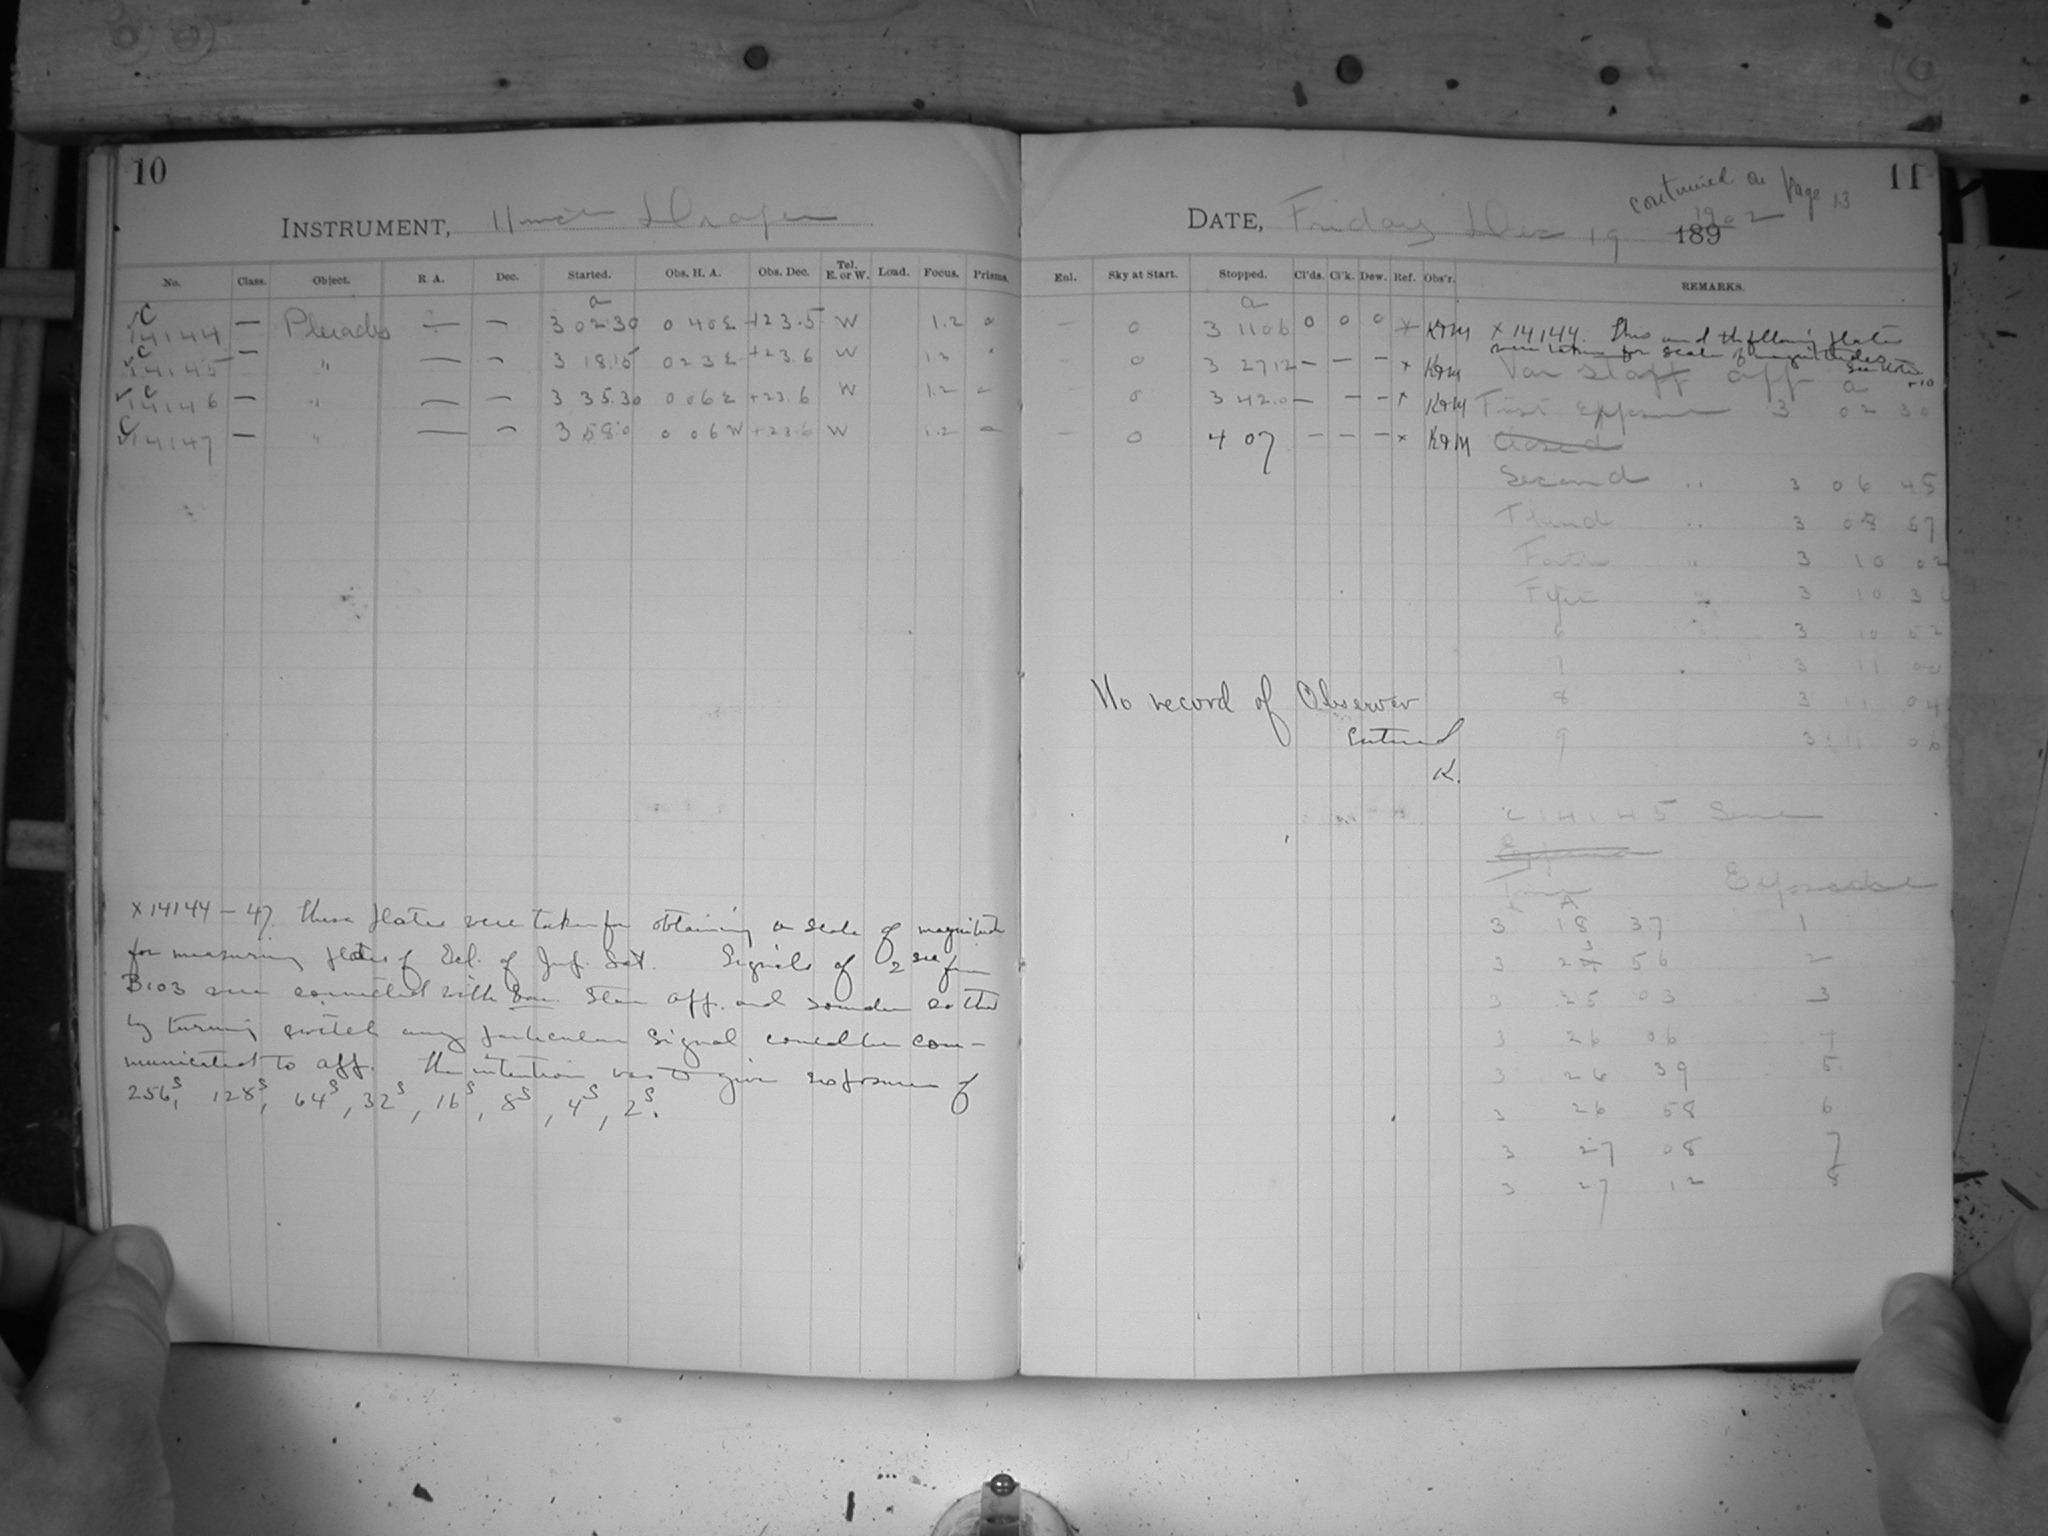 10
INSTRUMENT, 11 inch Draper
No. Class. Object. R A. Dec. Started. Obs. H. A. Obs. Dec. Tel. E. or W. Load. Focus. Prisms.
a
C 14144 — Pleiades — — 3 02 30 0 40 E +23.5 W 1.2 0
C 14145 — " — — 3 18.15 0 23 E +23.6 W 1.2 "
C 14146 — " — — 3 35.30 0 06 E +23.6 W 1.2 —
C 14147 — " — — 3 58.0 0 06 W +23.6 W 1.2 —
x 14144 – 47. These plates were taken for obtaining a scale of magnitude
for measuring plates of Ecl. of Jup. Sat. Signals of 2 sec from
B 103 were connected with Var. Star app. and sounder so that
by turning switch any particular signal could be com-
municated to app. The intention was to give exposures of
256s, 128s, 64s, 32s, 16s, 8s, 4s, 2s.
11
continued on page 13
DATE, Friday Dec 19 189 1902
Enl. Sky at Start. Stopped. Cl'ds. Cl'k. Dew. Ref. Obs'r. REMARKS.
a
— 0 3 11 06 0 0 0 x K&M x 14144. This and the following plates
were taken for scale of magnitudes
— 0 3 27 12 — — — x K&M Var Star app
— 0 3 42.0 — — — x K&M First Exposure 3 02 30
— 0 4 07 — — — x K&M Closed
Second " 3 06 45
Third " 3 08 57
" 3 10 02
" 3 10 3
6 3 10 52
7 3 11 00
8 3 11 04
9 3 11 06
No record of Observer
Entered
K.
C 14145 Same
Time Exposure
3 18 37 1
3 2 56 2
3 25 03 3
3 26 06 4
3 26 39 5
3 26 58 6
3 27 08 7
3 27 12 8